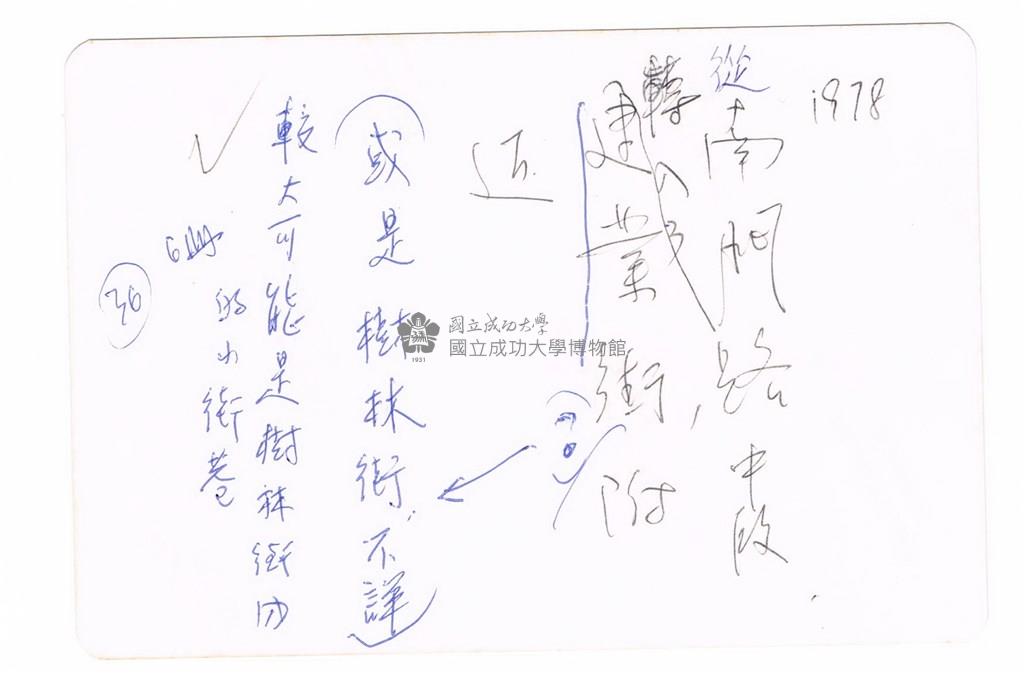 1978
從南門路中段
轉入
建業街,附
近
(?)
(或是樹林街,不詳)
較大可能是樹林街内
的小街巷
36
國立成功大學
國立成功大學博物館
1931